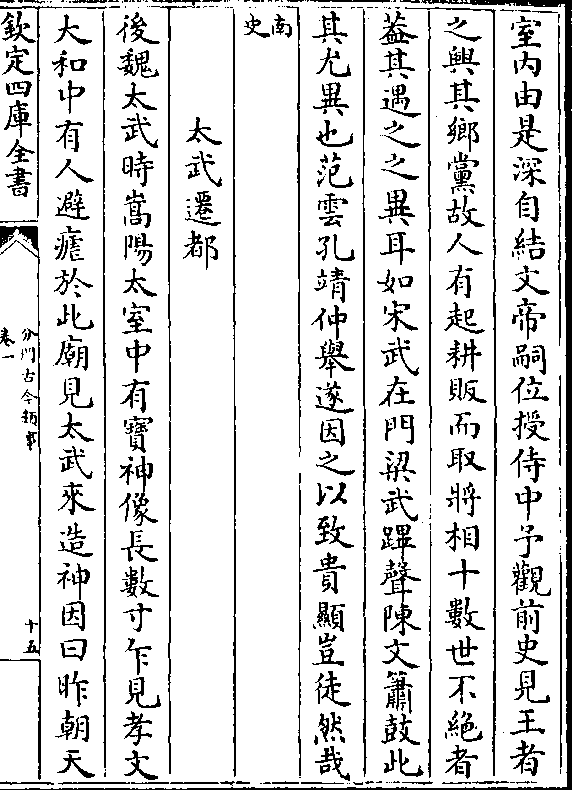 室内由是深自結文帝嗣位授侍中予觀前史見王者
之興其鄉黨故人有起耕販而取將相十數世不絶者
葢其遇之之異耳如宋武在門梁武蹕聲陳文簫鼓此
其尤異也范雲孔靖仲舉遂因之以致貴顯豈徒然哉
南史
太武遷都
後魏太武時嵩陽太室中有寳神像長數寸乍見孝文
大和中有人避瘧於此廟見太武來造神因曰昨朝天
欽定四庫全書
分門古今類事
卷一
十五